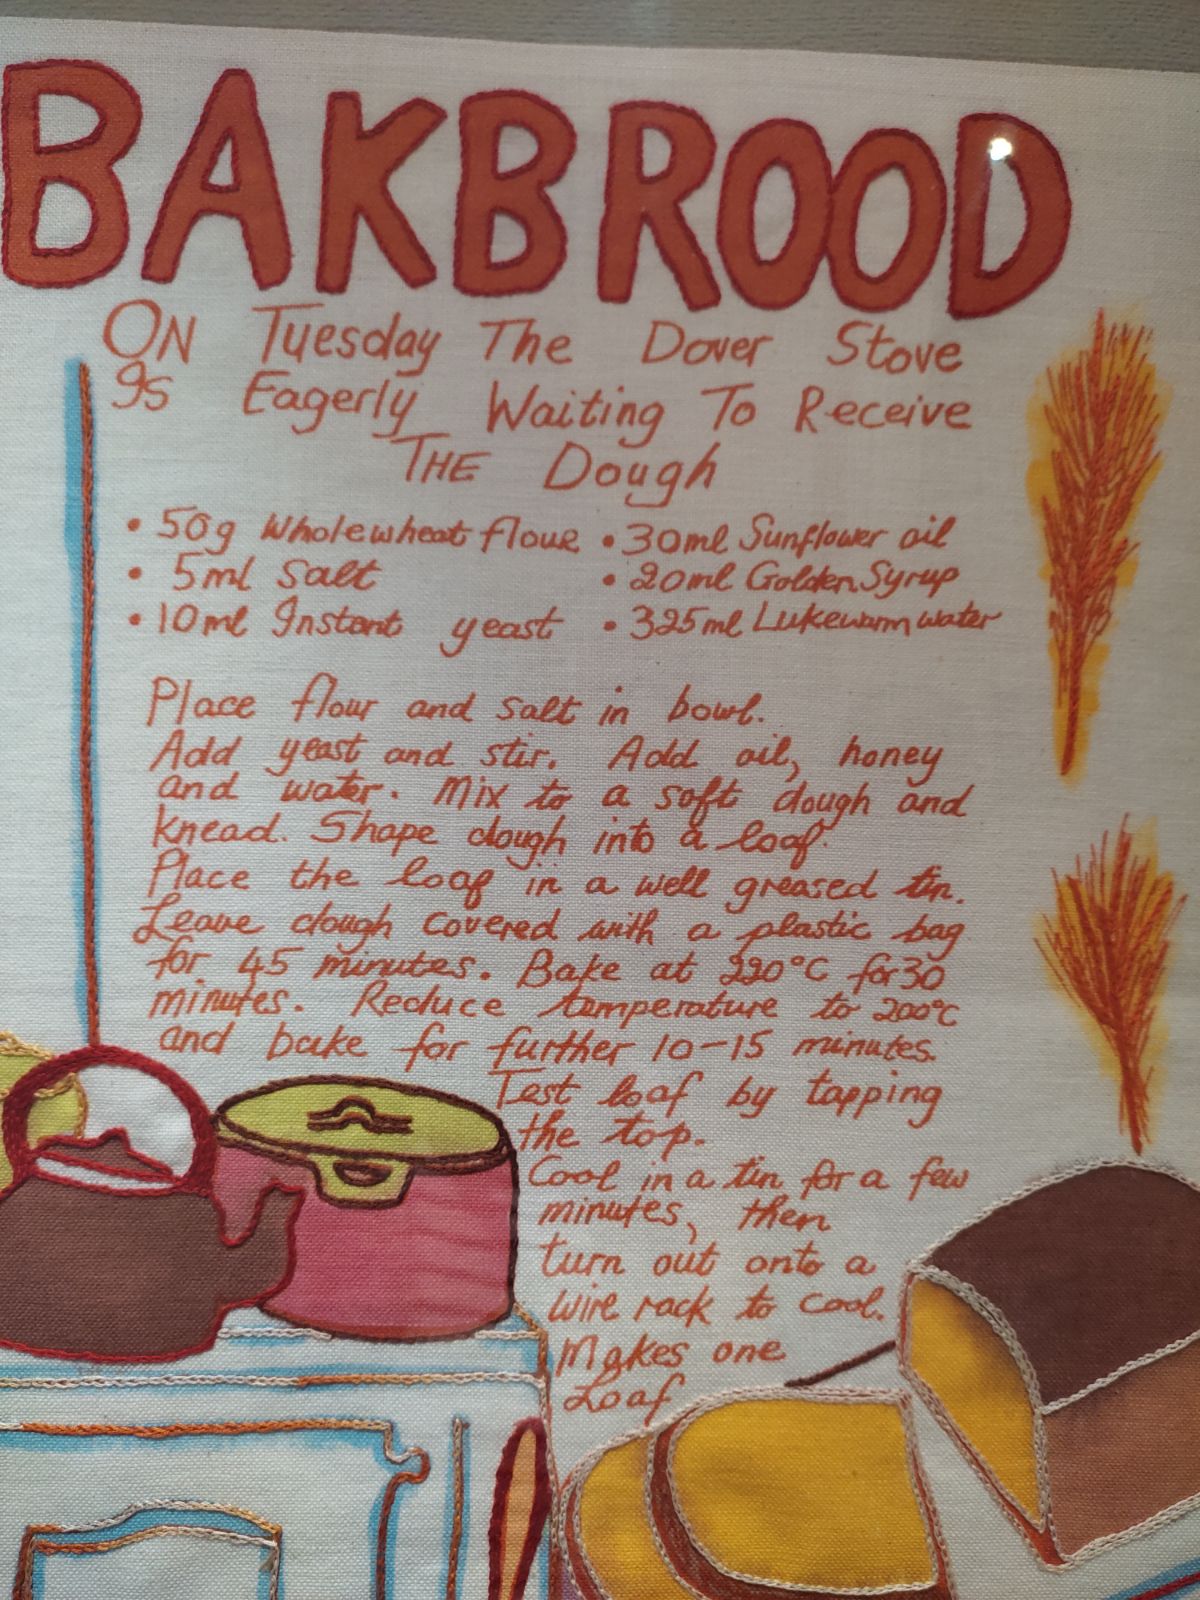 BAKBROOD
ON Tuesday The Dover Stove
Is Eagerly Waiting To Receive
THE Dough
• 50g Wholewheat flour • 30ml Sunflower oil
• 5ml Salt • 20ml Golden Syrup
• 10ml Instant yeast • 325ml Lukewarm water
Place flour and salt in bowl.
Add yeast and stir. Add oil, honey
and water. Mix to a soft dough and
knead. Shape dough into a loaf.
Place the loaf in a well greased tin.
Leave dough covered with a plastic bag
for 45 minutes. Bake at 220°C for 30
minutes. Reduce temperature to 200°C
and bake for further 10-15 minutes.
Test loaf by tapping
the top.
Cool in a tin for a few
minutes, then
turn out onto a
wire rack to cool.
Makes one
Loaf